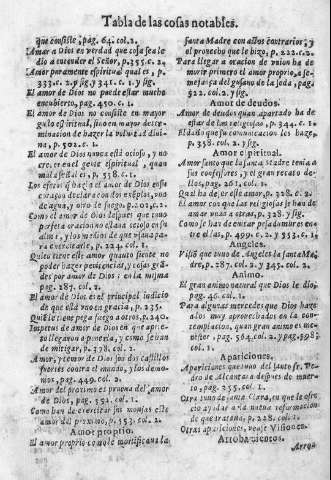 Tabla de las cosas notables.
que consiste, pag. 64. col. 2.
Amar a Dios en verdad que cosa sea le
dio a entender el Señor, p. 355. c. 2.
Amor puramente espiritual qual es, p.
333. c. 2. y sig. y 341. c. 1. y sig.
El amor de Dios no puede estar mucho
encubierto, pag. 450. c. 1.
El amor de Dios no consiste en mayor
gusto espiritual, sino en mayor deter-
minacion de hazer la voluntad divi-
na, p. 502. c. 1.
El amor de Dios nunca està ocioso, y no
crecer en el gente espiritual, quan
mala señal es, p. 538. c. 1.
Los efetos q̃ haze el amor de Dios en su
coraçon declara con dos exẽplos, uno
de agua, y otro de fuego, p. 202. c. 2.
Como el amor de Dios despues que tuvo
perfeta oracion no dexava estar ocioso su
alma, y los medios de que usava pa-
ra exercitarle, p. 224. col. 1.
Quien tiene este amor quanto siente no
poder hazer penitencias, y cosas grã-
des por amor de Dios: en la misma
pag. 287. col. 2.
El amor de Dios es el principal indicio
de que està uno en gracia, p. 243.
Quiẽ le tiene paga luego a otros, p. 240.
Impetus de amor de Dios en que aprie-
to llegaron a ponerla, y como se van
de mitigar, p. 378. col. 2.
Amor, y temor de Dios son dos castillos
fuertes contra el mundo, y los demo-
nios, pag. 449. col. 2.
Amor del proximo es prueva del amor
de Dios, pag. 552. col. 1.
Como han de exercitar sus monjas este
amor del proximo, p. 553. col. 2.
Amor proprio.
El amor proprio como le mortificava la
santa Madre con actos contrarios, y
el provecho que le hizo, p. 222. c. 1.
Para llegar a oracion de union ha de
morir primero el amor proprio, a se-
mejança del gusano de la seda, pag.
522. col. 2. y sig.
Amor de deudos.
Amor de deudos quan apartado ha de
estar de los religiosos, p. 344. c. 1.
El daño que su comunicacion les haze,
p. 358. col. 2. y sig.
Amor espiritual.
Amor santo que la santa Madre tenia a
sus confessores, y el gran recato de-
llos, pag. 261. col. 1.
Qual ha de ser este amor, p. 328. c. 2.
El amor con que las religiosas se han de
amar unas a otras, p. 328. y sig.
Como se han de evitar pesadumbres en-
tre ellas, p. 499. c. 2. y 553. c. 1.
Angeles.
Visiõ que tuvo de Angeles la santa Ma-
dre, p. 287. col. 2. y 345. col. 2.
Animo.
El gran animo natural que Dios le dio,
pag. 46. col. 1.
Para algunas mercedes que Dios haze
a los muy aprovechados en la con-
templacion, quan gran animo es me-
nester, pag. 564. col. 2. y pag. 598.
col. 1.
Apariciones.
Apariciones que tuvo del santo fr. Pe-
dro de Alcantara despues de muer-
to, pag. 255. col. 1.
Otra tuvo de santa Clara, en que le ofre-
cio ayudar a la nueva reformacion
de que tratava, p. 228. col. 2.
Otras apariciones, vease Visiones.
Arrobamientos.
Arro-